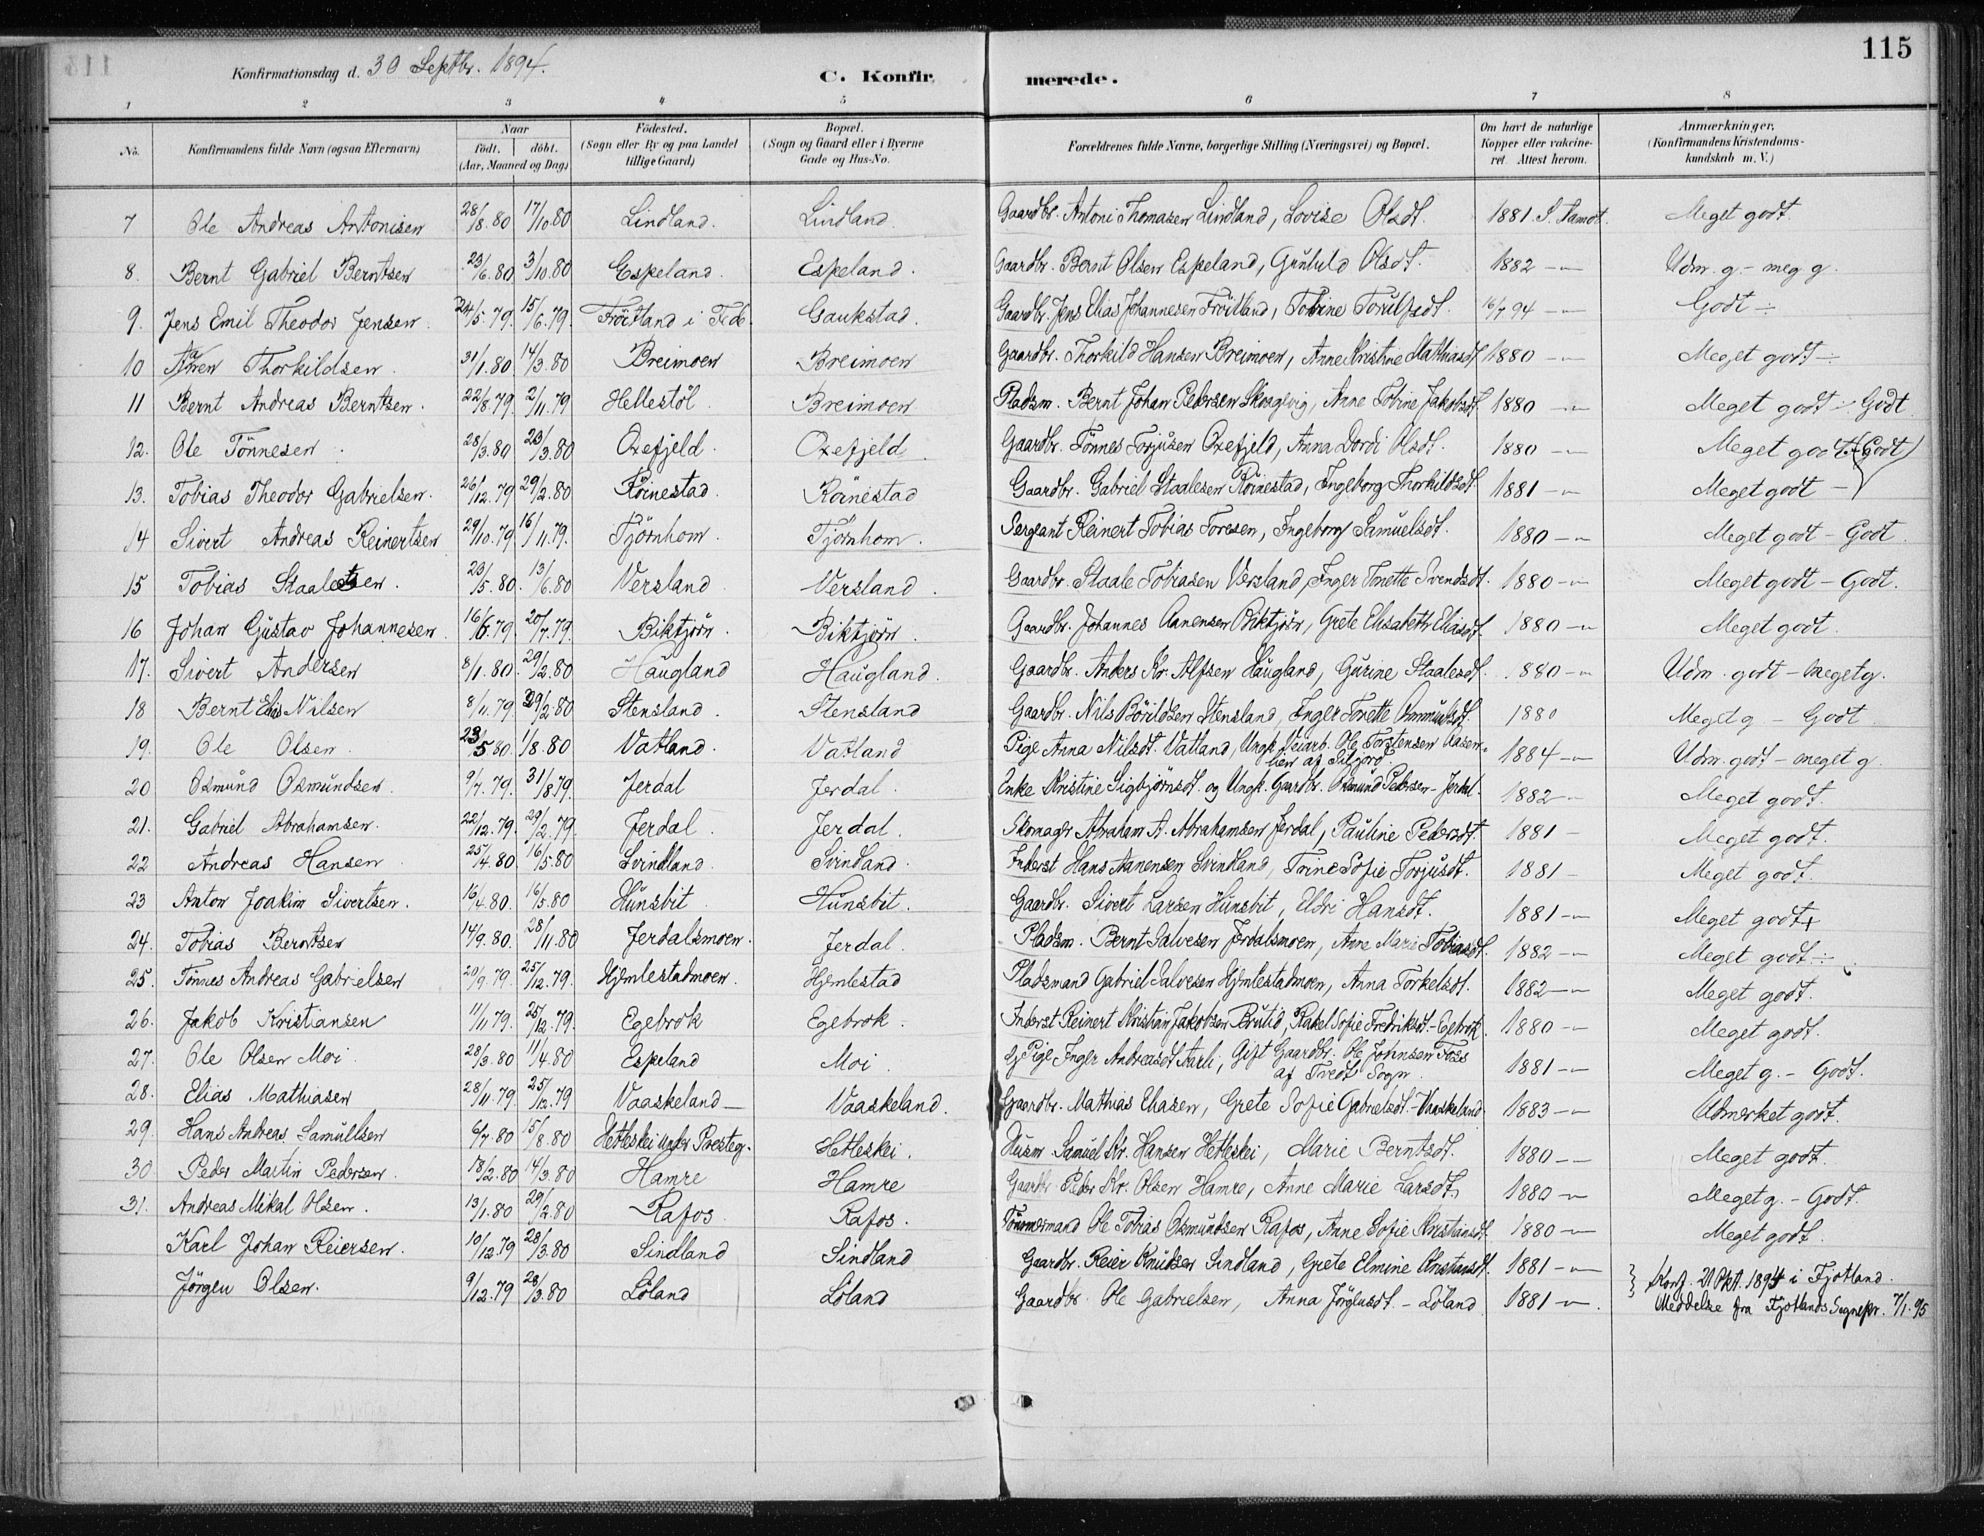 115
Konfirmationsdag d. 30 Septbr. 1894.
C. Konfirmerede.
1 2 3 4 5 6 7 8
No. Konfirmandens fulde Navn (ogsaa Efternavn) Naar födt. döbt. (Aar, Maaned og Dag) Födested. (Sogn eller By og paa Landet tillige Gaard) Bopæl. (Sogn og Gaard eller i Byerne Gade og Hus-No. Forældrenes fulde Navne, borgerlige Stilling (Næringsvei) og Bopæl. Om havt de naturlige Kopper eller vakcineret. Attest herom. Anmærkninger. (Konfirmandens Kristendomskundskab m. V.)
7 Ole Andreas Antonisen 28/8.80 17/10.80 Lindland. Lindland. Gaardbr. Antoni Thomasen Lindland, Lovise Olsdt. 1881. Meget godt
8. Bernt Gabriel Berntsen 23/6.80 3/10.80 Espeland. Espeland. Gaardbr. Bernt Olsen Espeland, Gunhild Olsdt. 1882 -„- Udm. g. - meg. g.
9. Jens Emil Theodor Jensen. 24/5.79. 15/6.79. Fröitland i Fede. Gaukstad. Gaardbr. Jens Elias Johannesen Fröitland, Tobine 16/7 94 -„- Godt ÷
10 Thorkildsen. 31/1.80 14/3.80 Breimoen Breimoen Gaardbr. Thorkild Hansen Breimoen, Anne Kristine Mathiasdt 1880 -„- Meget godt ÷
11 Bernt Andreas Berntsen. 22/8.79. 2/11.79 Hellestöl Breimoen Pladsm. Bernt Johan Pedersen Anne Tobine Jakobsdt. 1880 -„- Meget godt - Godt
12. Ole Tönnesen. 28/3.80 23/3.80 Oxefjeld. Oxefjeld. Gaardbr. Tönnes Torjusen Oxefjeld, Anna Dordi Olsdt. 1880 -„- Meget godt (Godt)
13. Tobias Theodor Gabrielsen. 26/12.79 29/2.80 Röinestad. Röinestad Gaardbr. Gabriel Staalesen Röinestad, Ingeborg Thorkildsdt. 1881 -„- Meget godt -
14 Sivert Andreas Reinertsen 29/10.79. 16/11.79. Tjörnhom. Tjörnhom. Sergeant Reinert Tobias Toresen, Ingeborg Samuelsdt. 1880 -„- Meget godt - Godt.
15 Tobias Staalesen. 23/5.80. 13/6.80 Versland. Versland. Gaardbr. Staale Tobiasen Versland, Inger Tonette Svendsdt. 1880 -„- Meget godt - Godt.
16 Johan Gustav Johannesen. 16/6.79. 20/7.79. Biktjörn. Biktjörn. Gaardbr. Johannes Aanensen Biktjörn, Grete Elisabeth Eliasdt. 1880 -„- Meget godt.
17. Sivert Andersen 8/1.80. 29/2.80 Haugland Haugland. Gaardbr. Anders Kr. Alfsen Haugland, Gurine Staalesdt. 1880 -„- Udm. godt - meget g.
18 Bernt Elias Nilsen 8/11.79 29/2.80 Stensland. Stensland Gaardbr. Nils Böildsen Stensland, Inger Tonette Osmundsdt. 1880 Meget g. - Godt.
19. Ole Olsen. 23/5 80. 1/8.80 Vatland. Vatland Pige Anna Nilsdt. Vatland, Ungk. Veiarb. Ole Torstensen Aasenlien af Siljord. 1884 -„- Udm. godt - meget g.
20 Osmund Osmundsen. 9/7.79. 31/8.79. Jerdal Jerdal. Enke Kristine Sigbjörnsdt. og Ungk. Gaardbr. Osmund Pedersen - Jerdal. 1882 - Meget godt.
21. Gabriel Abrahamsen. 22/12.79. 29/2.79. Jerdal. Jerdal. Skomager Abraham A. Abrahamsen Jerdal, Pauline Pedersdt. 1881 - Meget godt.
22 Andreas Hansen. 25/4.80 16/5.80 Svindland. Svindland. Inderst Hans Aanensen Svindland, Trine Sofie Torjusdt. 1881 - Meget godt.
23 Anton Joakim Sivertsen. 16/4.80. 16/5.80 Hunsbit. Hunsbit. Gaardbr. Sivert Larsen Hunsbit, Eldri Hansdt. 1881 -„- Meget godt +
24. Tobias Berntsen 14/9.80. 28/11.80 Jerdalsmoen. Jerdal. Pladsm. Bernt Salvesen Jerdalsmoen, Anne Marie Tobiasdt. 1882 -„- Meget godt ÷
25. Tönnes Andreas Gabrielsen 20/9.79. 25/12.79. Hjemlestadmoen. Hjemlestad Pladsmand Gabriel Salvesen Hjemlestadmoen, Anna Torkelsdt. 1882 -„- Meget godt.
26. Jakob Kristiansen 11/11.79. 25/12.79. Egebrok Egebrok. Inderst Reinert Kristian Jakobsen Rakel Sofie Fredriksdt. - Egebrok 1880 -„- Meget godt.
27. Ole Olsen Moi. 28/3.80 11/4.80 Espeland Moi. Pige Inger Andreasdt Aarli, Gift Gaardbr. Ole Johnsen Foss af Tvedt Sogn. 1881 -„- Meget g. - Godt.
28. Elias Mathiasen 28/11.79 25/12.79 Vaaskeland - Vaaskeland. Gaardbr. Mathias Eliasen, Grete Sofie Gabrielsdt. - Vaaskeland. 1883 -„- Udmerket godt.
29. Hans Andreas Samuelsen 6/7.80 15/8.80 Hetleskei under Presteg. Hetleskei. Husm. Samuel Kr. Hansen Hetleskei, Marie Berntsdt. 1880 -„- Meget godt.
30. Peder Martin Pedersen. 18/2.80 14/3.80 Hamre Hamre Gaardbr. Peder Kr. Olsen Hamre, Anne Marie Larsdt. 1880 -„- Meget g. - Godt.
31. Andreas Mikal Olsen. 13/1.80 29/2.80 Rafos Rafos. Tömmermand Ole Tobias Osmundsen Rafos, Anne Sofie Kristiansdt. 1880 -„- Meget godt.
Karl Johan Reiersen. 10/12.79 28/3.80 Sindland Sindland Gaardbr. Reier Knudsen Sindland, Grete Elmine Kristiansdt. 1881 -„-
Jörgen Olsen. 9/12.79 28/3.80 Löland Löland Gaardbr. Ole Gabrielsen, Anna Jörgensdt. - Löland 1881 -„-.
} Konf. 21 Okt. 1894 i Fjotland.
Meddelse fra Fjotlands Sognepr. 7/1.95